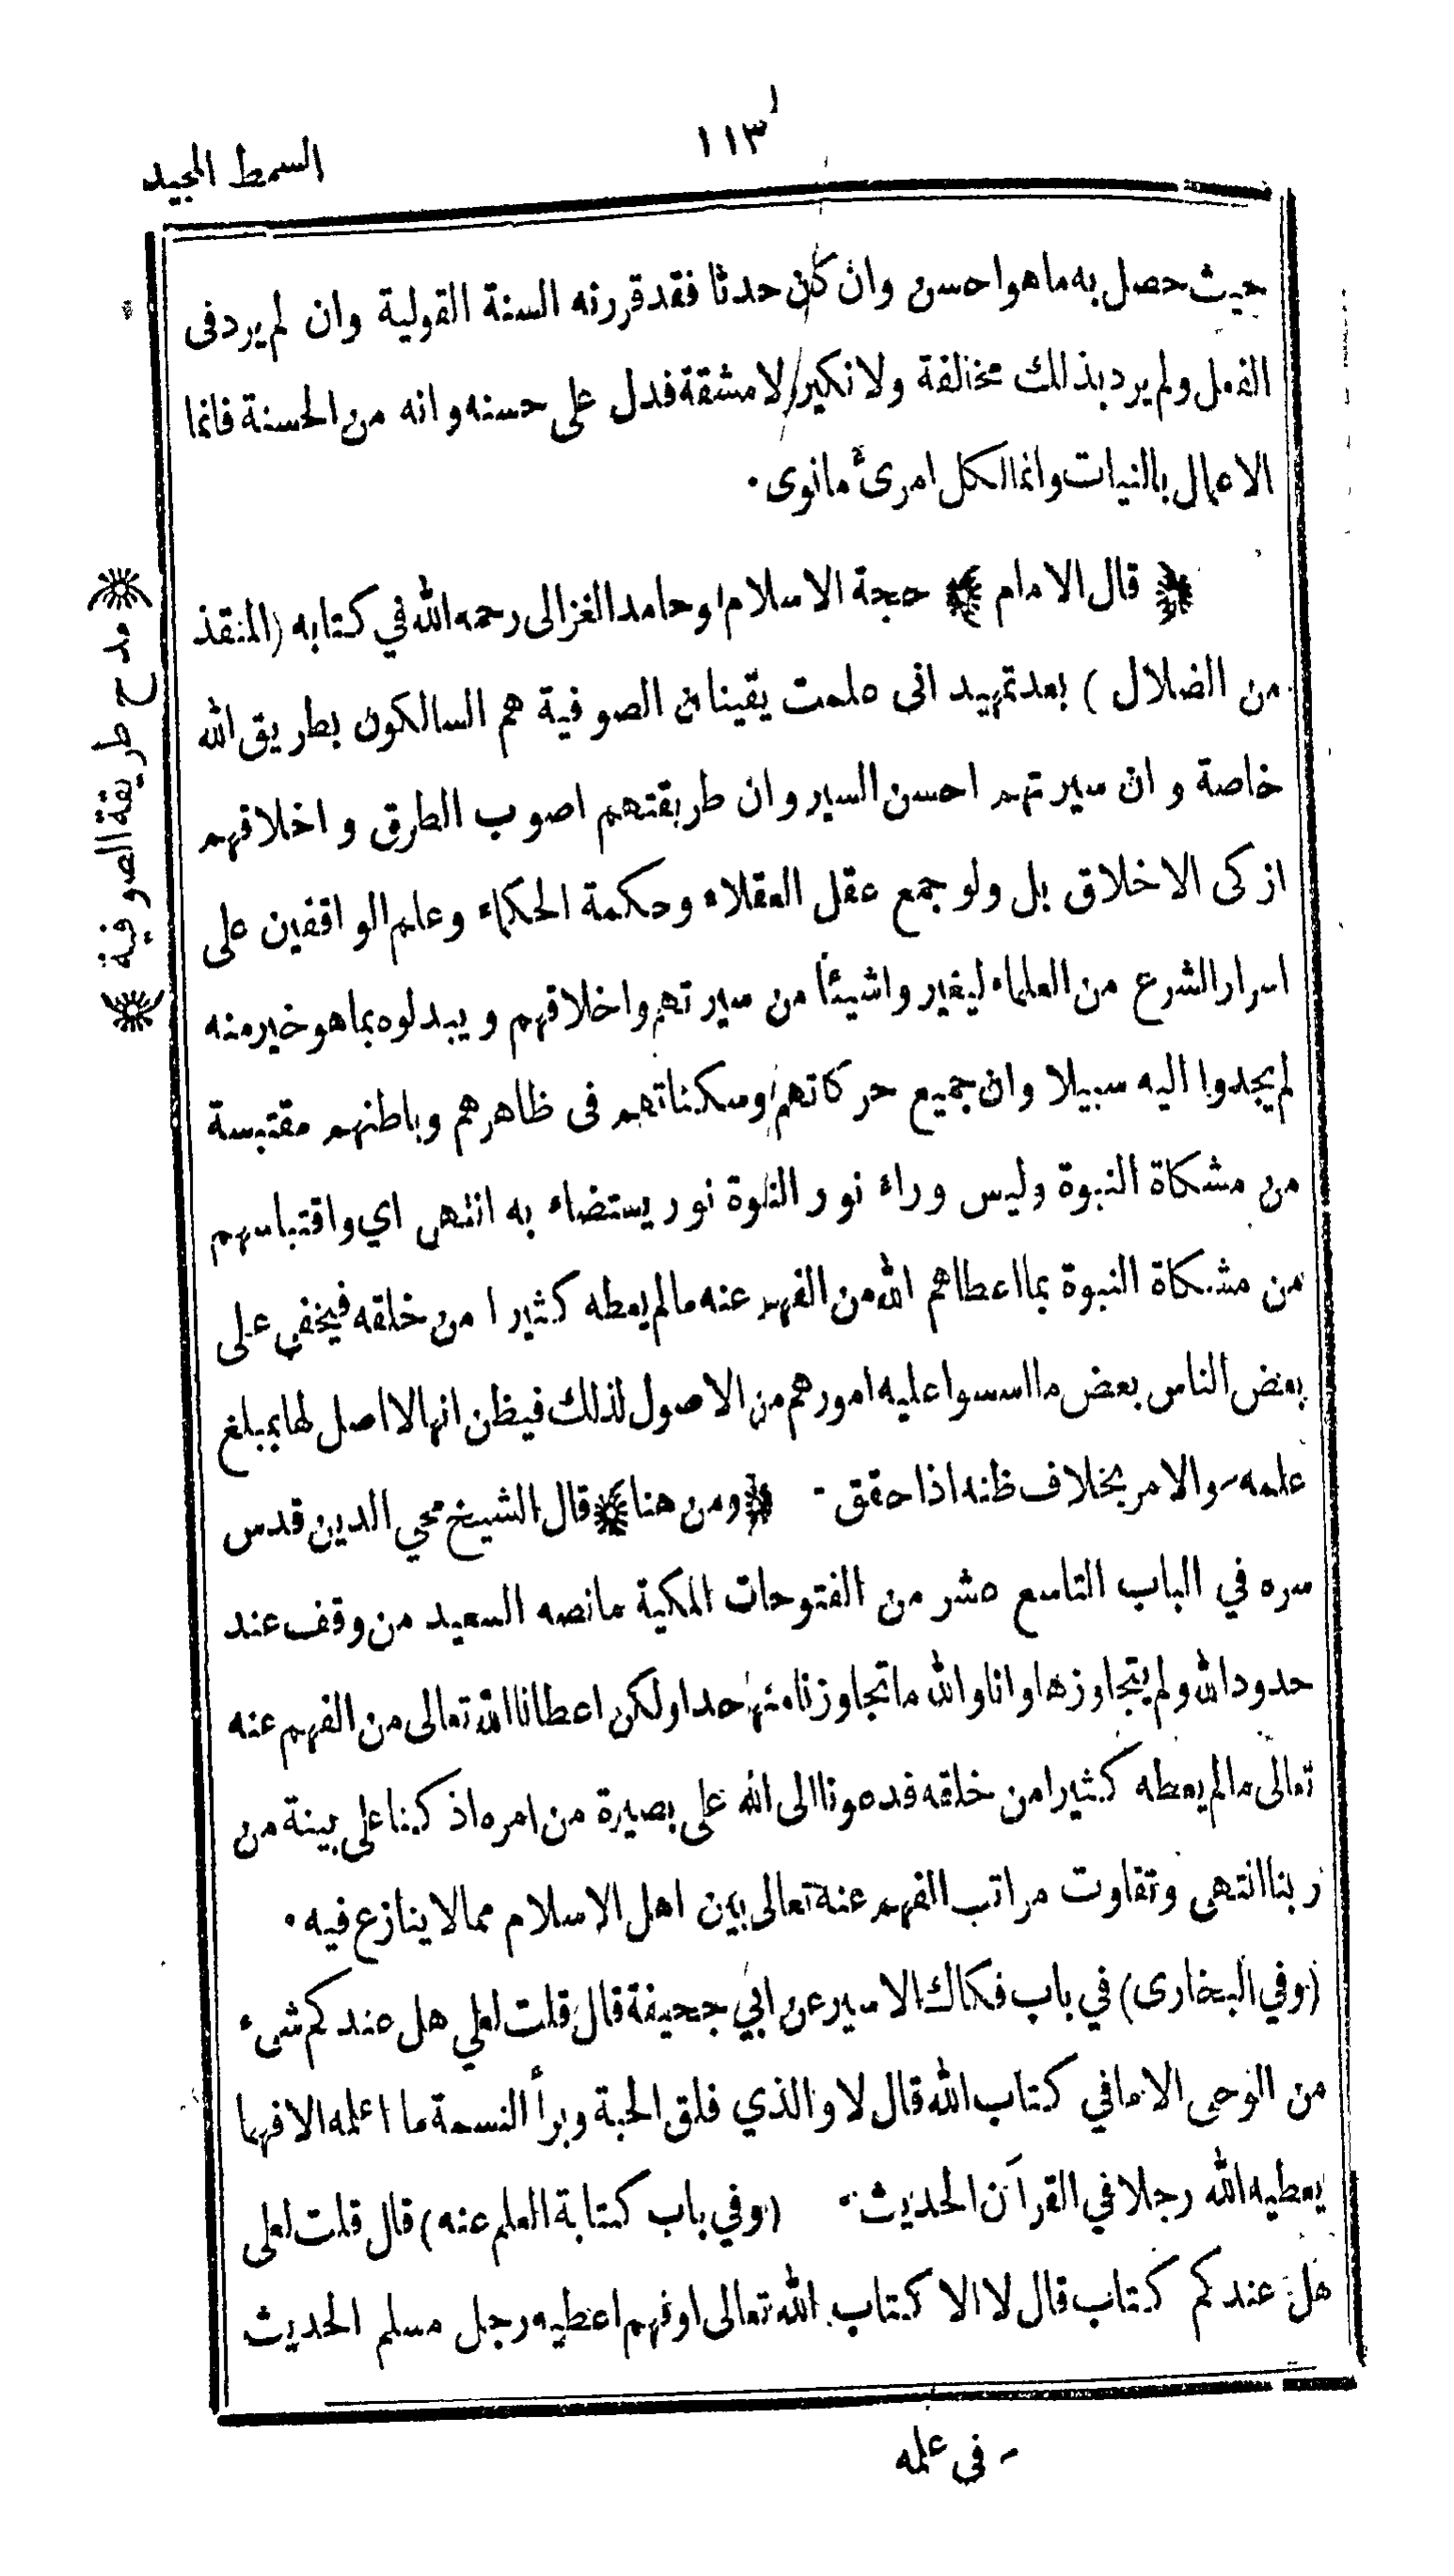 ١١٣
السمط المجيد
حيث حصل به ما هو احسن وان كان حدثا فقد قررته السنة القولية وان لم يرد فى
الفعل ولم يرد بذلك مخالفة ولا نكير لا مشقة فدل على حسنه وانه من الحسنة فانما
الاعمال بالنيات وانما لكل امرئ ما نوى ٠
﴿ قال الامام ﴾ حجة الاسلام ابو حامد الغزالى رحمه الله في كتابه (المنقذ
من الضلال ) بعد تمهيد انى علمت يقينا ان الصوفية هم السالكون بطريق الله
خاصة و ان سيرتهم احسن السير وان طريقتهم اصوب الطرق و اخلاقهم
ازكى الاخلاق بل ولو جمع عقل العقلاء وحكمة الحكماء وعلم الواقفين على
اسرار الشرع من العلماء ليغيروا شيئاً من سيرتهم واخلاقهم ويبدلوه بما هو خير منه
لم يجدوا اليه سبيلا وان جميع حركاتهم وسكناتهم فى ظاهرهم وباطنهم مقتبسة
من مشكاة النبوة وليس وراء نور النبوة نور يستضاء به انتهى اي واقتباسهم
من مشكاة النبوة بما اعطاهم الله من الفهم عنه ما لم يعطه كثيرا من خلقه فيخفى على
بعض الناس بعض ما اسسوا عليه امورهم من الاصول لذلك فيظن انها لا اصل لها بمبلغ
علمه – والامر بخلاف ظنه اذا حقق - ﴿ ومن هنا ﴾ قال الشيخ محي الدين قدس
سره في الباب التاسع عشر من الفتوحات المكية ما نصه السعيد من وقف عند
حدود الله ولم يتجاوزها وانا والله ما تجاوزنا منها حدا ولكن اعطانا الله تعالى من الفهم عنه
تعالى ما لم يعطه كثيرا من خلقه فدعونا الى الله على بصيرة من امره اذ كنا على بينة من
ربنا انتهى وتفاوت مراتب الفهم عنه تعالى بين اهل الاسلام مما لا ينازع فيه ٠
(وفي البخارى) في باب فكاك الاسير عن ابي جحيفة قال قلت لعلي هل عندكم شىء
من الوحى الا ما في كتاب الله قال لا والذي فلق الحبة وبرأ النسمة ما اعلمه الا فهما
يعطيه الله رجلا في القرآن الحديث - (وفي باب كتابة العلم عنه) قال قلت لعلى
هل عندكم كتاب قال لا الا كتاب الله تعالى او فهم اعطيه رجل مسلم الحديث
– فى علمه
﴿ مدح طريقة الصوفية ﴾